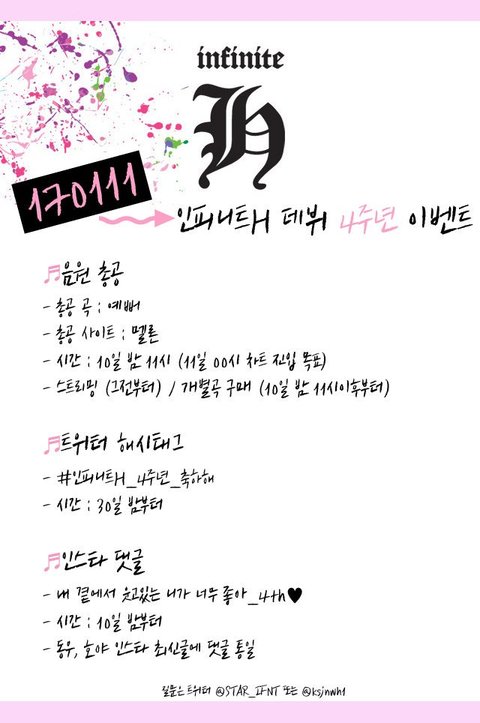 infinite
H
170111
인피니트H 데뷔 4주년 이벤트
음원 총공
- 총공 곡 : 예뻐
- 총공 사이트 : 멜론
- 시간 : 10일 밤 11시 (11일 00시 차트 진입 목표)
- 스트리밍 (그전부터) / 개별곡 구매 (10일 밤 11시이후부터)
트위터 해시태그
- #인피니트H_4주년_축하해
- 시간 : 30일 밤부터
인스타 댓글
- 내 곁에서 웃고있는 니가 너무 좋아_4th♥
- 시간 : 10일 밤부터
- 동우, 호야 인스타 최신글에 댓글 통일
질문은 트위터 @STAR_IFNT 또는 @ksjnwh1